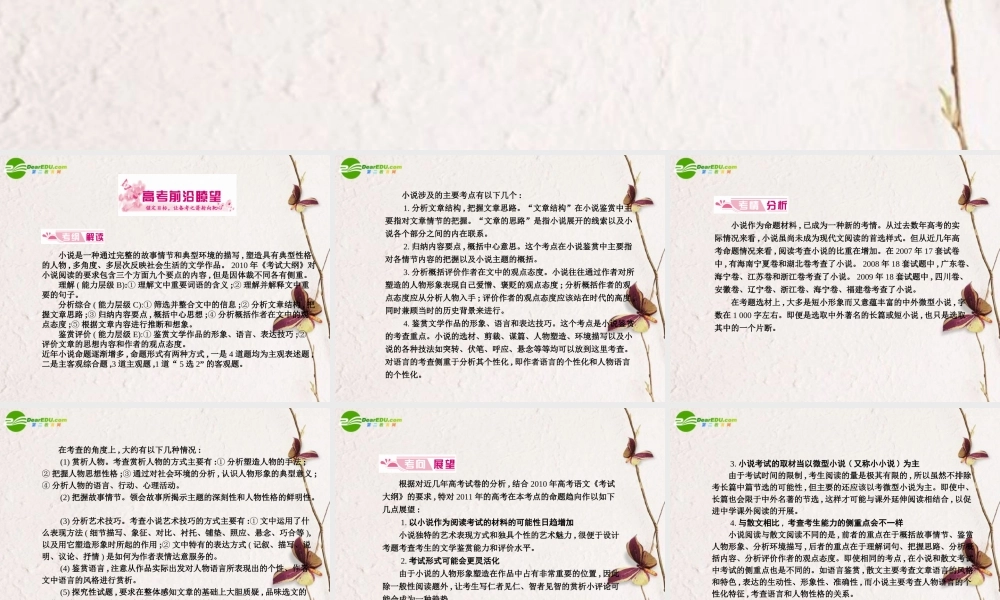 DearEDU.com
第二教育网
高考前沿瞭望
锁定目标，让备考之箭射向靶心
考纲 解读
小说是一种通过完整的故事情节和典型环境的描写,塑造具有典型性格
的人物,多角度、多层次反映社会生活的文学作品。 2010 年《考试大纲》对
小说阅读的要求包含三个方面九个要点的内容,但是因体裁不同各有侧重。
理解 ( 能力层级 B):① 理解文中重要词语的含义;② 理解并解释文中重
要的句子。
分析综合 ( 能力层级 C):① 筛选并整合文中的信息;② 分析文章结构,把
握文章思路;③ 归纳内容要点,概括中心思想;④ 分析概括作者在文中的观
点态度;⑤ 根据文章内容进行推断和想象。
鉴赏评价 ( 能力层级 E):① 鉴赏文学作品的形象、语言、表达技巧;②
评价文章的思想内容和作者的观点态度。
近年小说命题逐渐增多,命题形式有两种方式,一是 4 道题均为主观表述题;
二是主客观综合题,3 道主观题,1 道“ 5 选 2” 的客观题。
DearEDU.com
小说涉及的主要考点有以下几个 :
1. 分析文章结构,把握文章思路。“文章结构”在小说鉴赏中主
要指对文章情节的把握。“文章的思路”是指小说展开的线索以及小
说各个部分之间的内在联系。
2. 归纳内容要点，概括中心意思。这个考点在小说鉴赏中主要指
对各情节内容的把握以及小说主题的概括。
3. 分析概括评价作者在文中的观点态度。小说往往通过作者对所
塑造的人物形象表现自己爱憎、褒贬的观点态度；分析概括作者的观
点态度应从分析人物入手；评价作者的观点态度应该站在时代的高度,
同时兼顾当时的历史背景来进行。
4. 鉴赏文学作品的形象、语言和表达技巧。这个考点是小说鉴赏
的考查重点。小说的选材、剪裁、谋篇、人物塑造、环境描写以及小
说的各种技法如突转、伏笔、呼应、悬念等等均可以放到这里考查。
对语言的考查侧重于分析其个性化，即作者语言的个性化和人物语言
的个性化。
DearEDU.com
考情 分析
小说作为命题材料，已成为一种新的考情。从过去数年高考的实
际情况来看，小说虽尚未成为现代文阅读的首选样式。但从近几年高
考命题情况来看，阅读考查小说的比重在增加。在 2007 年 17 套试卷
中，有海南宁夏卷和湖北卷考查了小说。 2008 年 18 套试题中，广东卷、
海宁卷、江苏卷和浙江卷考查了小说。 2009 年 18 套试题中，四川卷、
安徽卷、辽宁卷、浙江卷、海宁卷、福建卷考查了小说。
在考题选材上，大多是短小形象而又意蕴丰富的中外微型小说，字
数在 1 000 字左右。即便是选取中外著名的长篇或短小说，也只是选取
其中的一个片断。
DearEDU.com
在考查的角度上 , 大约有以下几种情况 :
(1) 赏析人物。考查赏析人物的方式主要有 :① 分析塑造人物的手法;
② 把握人物思想性格;③ 通过对社会环境的分析,认识人物形象的典型意义;
④ 分析人物的语言、行动、心理活动。
(2) 把握故事情节。领会故事所揭示主题的深刻性和人物性格的鲜明性。
(3) 分析艺术技巧。考查小说艺术技巧的方式主要有 :① 文中运用了什
么表现方法 ( 细节描写、象征、对比、衬托、铺垫、照应、悬念、巧合等 ),
以及用它塑造形象时所起的作用;② 文中特有的表达方式 ( 记叙、描写、说
明、议论、抒情 ) 是如何为作者表情达意服务的。
(4) 鉴赏语言，注意从作品实际出发对人物语言所表现出的个性、作者
文中语言的风格进行赏析。
(5) 探究性试题，要求在整体感知文章的基础上大胆质疑，品味选文的
DearEDU.com
考向 展望
根据对近几年高考试卷的分析，结合 2010 年高考语文《考试
大纲》的要求，特对 2011 年的高考在本考点的命题趋向作以如下
几点展望：
1. 以小说作为阅读考试的材料的可能性日趋增加
小说独特的艺术表现方式和独具个性的艺术魅力，很便于设计
考题考查考生的文学鉴赏能力和评价水平。
2. 考试形式可能会更灵活化
由于小说的人物形象塑造在作品中占有非常重要的位置，因此
除一般性阅读题外，让考生写仁者见仁、智者见智的赏析小评论可
能会成为一种趋势
DearEDU.com
3. 小说考试的取材当以微型小说 ( 又称小小说 ) 为主
由于考试时间的限制，考生阅读的量是极其有限的，所以虽然不排除
考长篇中篇节选的可能性，但主要的还应该以考微型小说为主。即使中、
长篇也会限于中外名著的节选，这样才可能与课外延伸阅读相结合，以促
进中学课外阅读的开展。
4. 与散文相比，考查考生能力的侧重点会不一样
小说阅读与散文阅读不同的是，前者的重点在于概括故事情节、鉴赏
人物形象、分析环境描写，后者的重点在于理解词句、把握思路、分析概
括内容、分析评价作者的观点态度。即使相同的考点，在小说和散文考查
中考试的侧重点也是不同的。如语言鉴赏，散文主要考查文章语言的风格
和特色，表达的生动性、形象性、准确性，而小说主要考查人物语言的个
性化特征，考查语言和人物性格的关系。